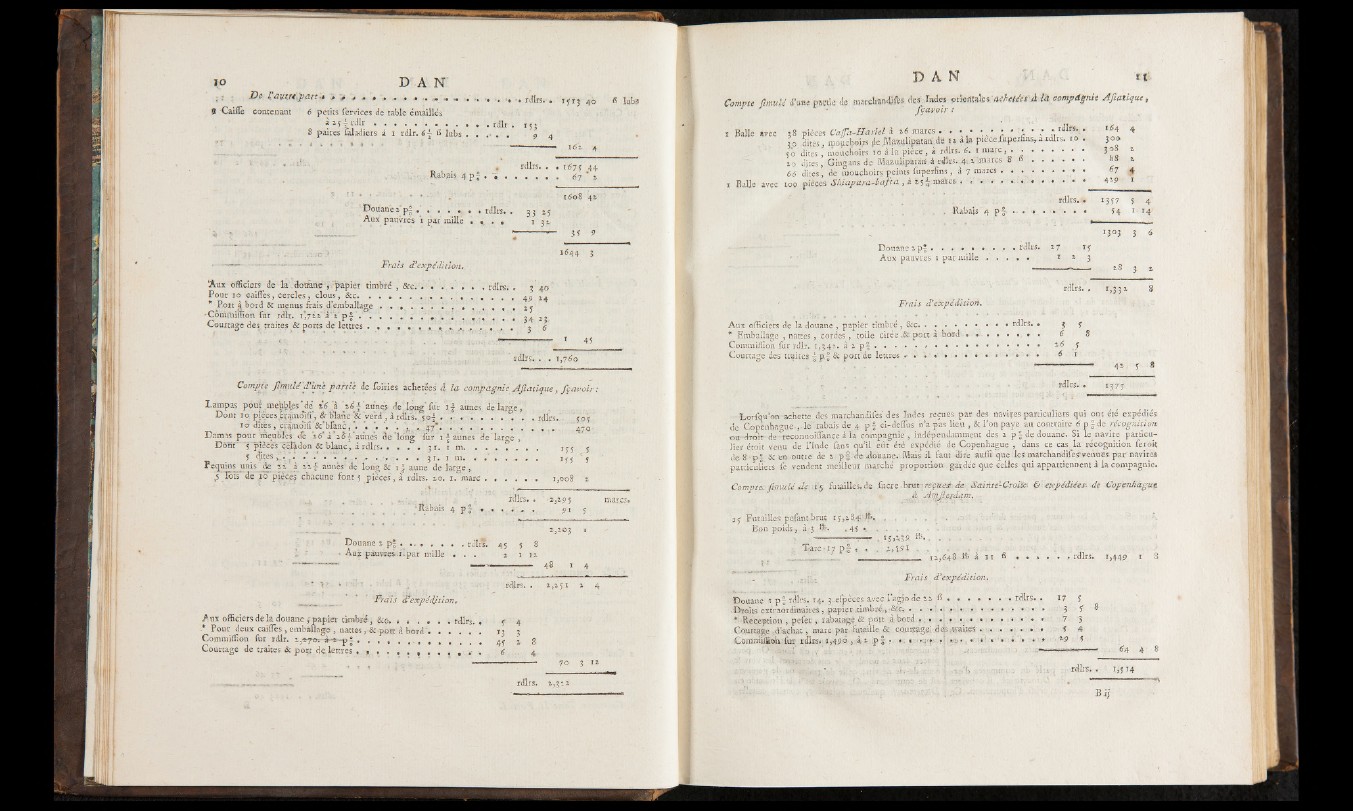 10 DAN
De l'autre part . . . . . . . . rdlrs. . 1513 40 6 lubs
9 Caisse contenant 6 petits services de table émaillés
à 25 ½ rdlr . . . . . . . . rdlr . 153
8 paires saladiers à 1 rdlr. 6½ ß lubs . . . . 9 4
162 4
rdlrs. . . 1675 44
Rabais 4 p% . . . . . . . 67 2
1608 42
Douane 2 p% . . . . . . rdlrs. . 33 25
Aux pauvres 1 par mille . . . . 1 32
35 9
1644 3
Frais d'expédition.
Aux officiers de la douane, papier timbré, &c. . . . . . . rdlrs. . 3 40
Pour 10 caisses, cercles, clous, &c. . . . . . . 49 24
* Port à bord & menus frais d'emballage . . . . . . 25
Commission sur rdlr. 1,722 à 2 p% . . . . . . 34 23
Courtage des traites & ports de lettres . . . . . . 3 6
1 45
rdlrs. . . 1,760
Compte simulé d'une partie de soiries achetées à la compagnie Asiatique, sçavoir :
Lampas pour meubles de 26 à 26½ aunes de long sur 1¼ aunes de large,
Dont 10 pièces cramoisi, & blanc & verd, à rdlrs. 50½ . . . . . . rdlrs. 505
10 dites, cramoisi & blanc, . . . . . 47 . . . . . . 470
Damas pour meubles de 26 à 26½ aunes de long sur 1¼ aunes de large,
Dont 5 pièces céladon & blanc, à rdlrs. . . . . 31. 1 m. . . . . . . 155 5
5 dites, . . . . . . . 31. 1 m. . . . . . . 155 5
Pequins unis de 22 à 22½ aunes de long & 1¼ aune de large,
5 lots de 10 pièces chacune font 5 pièces, à rdlrs. 20. 1. marc . . . . . . 1,008 2
rdlrs. . 2,295 marcs.
Rabais 4 p% . . . . . . 91 5
2,203 1
Douane 2 p% . . . . . . rdlrs. 45 5 8
Aux pauvres 1 par mille . . . 2 1 12
48 1 4
rdlrs. . 2,251 2 4
Frais d'expédition.
Aux officiers de la douane, papier timbré, &c. . . . . . rdlrs. . 5 4
* Pour deux caisses, emballage, nattes, & port à bord . . . . . . 13 3
Commission sur rdlr. 2,270. à 2 p% . . . . . . 45 2 8
Courtage de traites & port de lettres . . . . . . 6 4
70 3 12
rdlrs. 2,322
DAN 11
Compte simulé d'une partie de marchandises des Indes orientales achetées à la compagnie Asiatique,
sçavoir :
1 Balle avec 38 pièces Cassa-Hariel à 26 marcs . . . . . . rdlrs. . 164 4
30 dites, mouchoirs de Mazulipatan de 12 à la pièce superfins, à rdlrs. 10 . 300
50 dites, mouchoirs 10 à la pièce, à rdlrs. 6. 1 marc, . . . . . . 308 2
20 dites, Gingans de Mazulipatan à rdlrs. 4. 2 marcs 8 ß . . . . . . 88 2
66 dites, de mouchoirs peints superfins, à 7 marcs . . . . . . 67 4
1 Balle avec 100 pièces Shiapura-bafta, à 25½ marcs . . . . . . 429 1
rdlrs. . 1357 5 4
Rabais 4 p% . . . . . . 54 1 14
1303 3 6
Douane 2 p% . . . . . . rdlrs. 27 15
Aux pauvres 1 par mille . . . . . 1 2 3
28 3 2
rdlrs. . 1,332 8
Frais d'expédition.
Aux officiers de la douane, papier timbré, &c. . . . . . rdlrs. . 3 5
* Emballage, nattes, cordes, toile cirée & port à bord . . . . . . 6 8
Commission sur rdlr. 1,342. à 2 p% . . . . . . 26 5
Courtage des traites ½ p% & port de lettres . . . . . . 6 1
42 5 8
rdlrs. . 1375
Lorsqu'on achette des marchandises des Indes reçues par des navires particuliers qui ont été expédiés
de Copenhague, le rabais de 4 p% ci-dessus n'a pas lieu, & l'on paye au contraire 6 p% de récognition
ou droit de reconnoissance à la compagnie, indépendamment des 2 p% de douane. Si le navire particu-
lier étoit venu de l'Inde sans qu'il eût été expédié de Copenhague, dans ce cas la récognition seroit
de 8 p% & en outre de 2 p% de douane. Mais il faut dire aussi que les marchandises venues par navires
particuliers se vendent meilleur marché proportion gardée que celles qui appartiennent à la compagnie.
Compte simulé de 25 futailles de sucre brut reçues de Sainte-Croix & expédiées de Copenhague
à Amsterdam.
25 Futailles pesant brut 15,284 lb.
Bon poids, à 3 lb. . 45 .
15,239 lb.
Tare 17 p% . . . 2,591
12,648 lb à 11 ß . . . . . . rdlrs. 1,449 1 8
Frais d'expédition.
Douane 2 p% rdlrs. 14. 3. espèces avec l'agio de 22 ß . . . . . . rdlrs. . 17 5
Droits extraordinaires, papier timbré, &c. . . . . . . 3 5 8
* Réception, peser, rabatage & port à bord . . . . . . 7 3
Courtage d'achat, marc par futaille & courtage des traites . . . . . . 5 4
Commission sur rdlrs. 1,490, à 2 p% . . . . . . 29 5
64 4 8
rdlrs. . 1,514
B ij